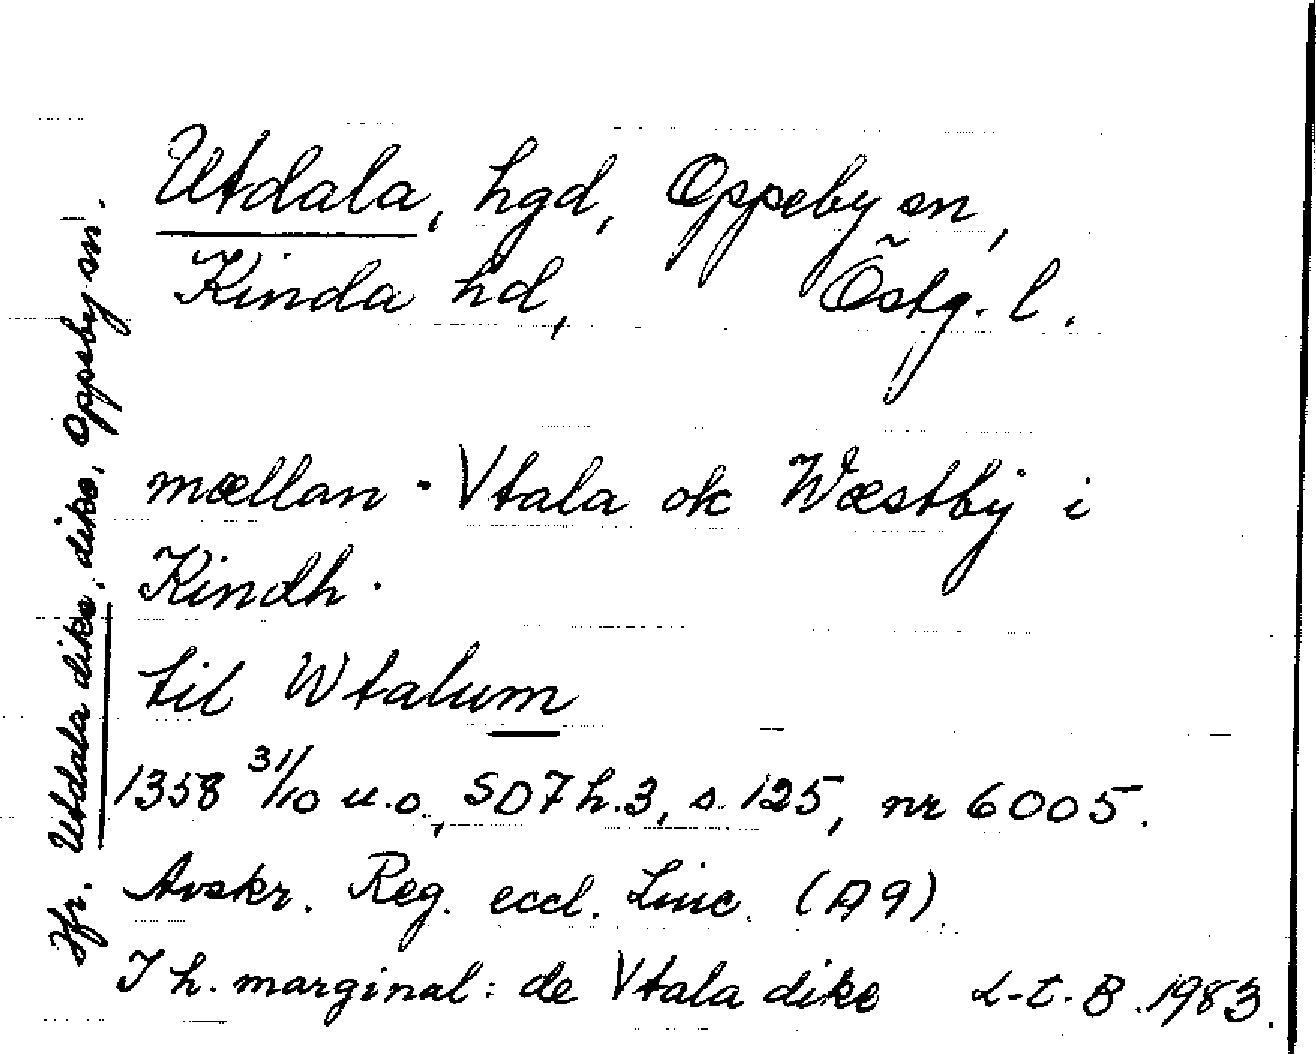 Utdala, hgd, Oppeby sn,
Kinda hd, Östg. l.
mællan · Vtala ok Wæstby i
Kindh ·
til Wtalum
1358 31/10 u.o., SD7 h.3, s. 125, nr 6005.
Avskr. Reg. eccl. Linc. (A 9).
I h. marginal: de Vtala dike L-t. B. 1983.
Jfr. Utdala dike, dike, Oppeby sn.